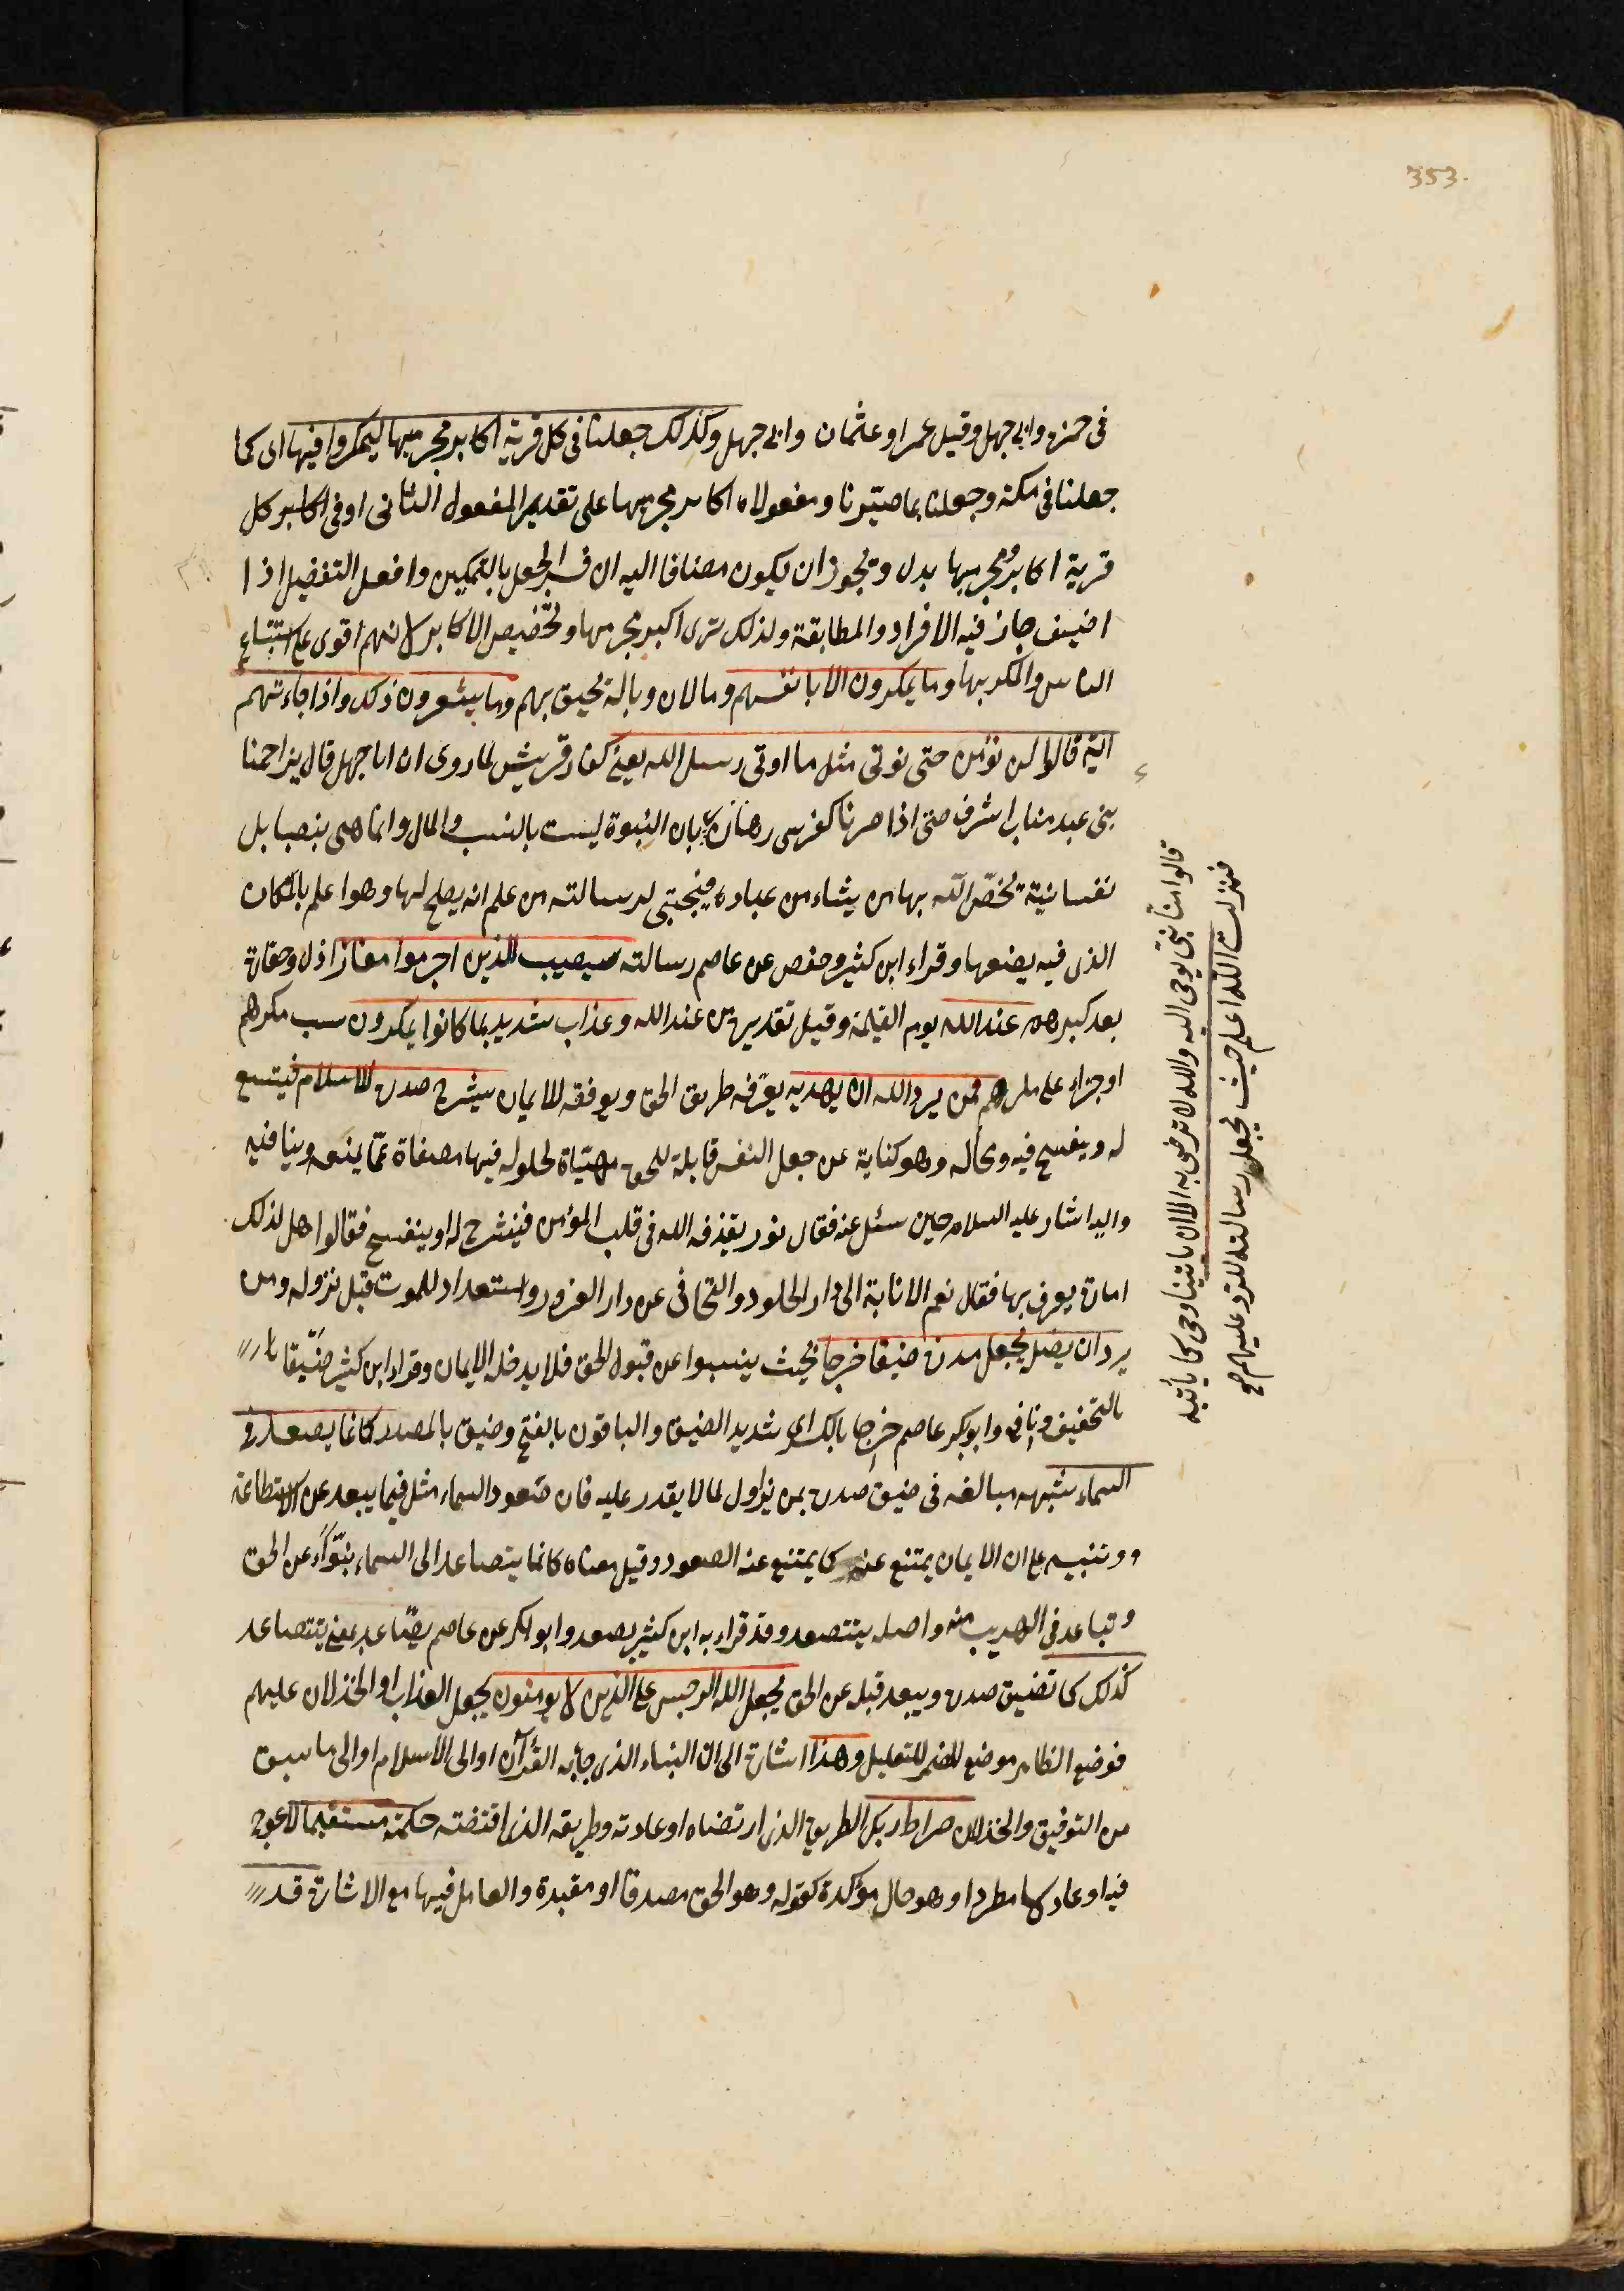 353.
فى حمزة وابى جهل وقيل عمر او عثمان وابى جهل وكذلك جعلنا فى كل قرية اكابر مجرميها ليمكروا فيها اى كما
جعلنا فى مكة وجعلنا بما صيرنا ومفعولاه اكابر مجرميها على تقديم المفعول الثانى او فى اكابر كل
قرية اكابر مجرميها بدل ويجوز ان يكون مضافا اليه ان فسر الجعل بالتمكين وافعل التفضيل اذا
اضيف جاز فيه الافراد والمطابقة ولذلك ترى اكبر مجرمها وتخصيص الاكابر لانهم اقوى على استتباع
الناس والمكر بها وما يمكرون الا بانفسهم وما لان وباله يحيق بهم وما يشعرون ذلك واذا جاءتهم
اية قالوا لن نؤمن حتى نؤتى مثل ما اوتى رسل الله يعنى كفار قريش لما روى ان ابا جهل قال يزاحمنا
بنى عبد مناب اشرف حتى اذا صرنا كفرسى رهان بان النبوة ليست بالنسب والمال وانما هى بنصبا بل
نفسانية يخص الله بها من يشاء من عباده فيجتبى لرسالته من علم انه يصلح لها وهو اعلم بالمكان
الذى فيه يضعها وقراء ابن كثير وحفص عن عاصم رسالته سيصيب الذين اجرموا صغار اذل وحقارة
بعد كبرهم عند الله يوم القيمة وقيل تقديره من عند الله وعذاب شديد بما كانوا يمكرون سبب مكرهم
او جزاء على مكرهم فمن يرد الله ان يهديه يعرفه طريق الحق ويوفقه للايمان يشرح صدره للاسلام فيتسع
له وينفسح فيه وحاله وهو كناية عن جعل النفس قابلة للحق مهيئاة لحلوله فيها مصفاة عما يمنعه وينافيه
واليه اشار عليه السلام حين سئل عنه فقال نور يقذفه الله فى قلب المؤمن فينشرح له او ينفسح فقالوا هل لذلك
امارة يعرف بها فقال نعم الانابة الى دار الخلود والتجافى عن دار الغرور واستعداد للموت قبل نزوله ومن
يرد ان يضله يجعل صدره ضيقا حرجا بحيث ينسبوا عن قبول الحق فلا يدخله الايمان وقراء ابن كثير ضيقا
بالتخفيف ونافع وابو بكر عاصم حرجا بالكسر اى شديد الضيق والباقون بالفتح وضيق بالمصدر كانما يصعد فى
السماء شبهه مبالغة فى ضيق صدره بمن يزاول لما لا يقدر عليه فان صعود السماء مثل فيما يبعد عن الاستطاعة
ووتنبيه على ان الايمان يمتنع عنه كما يمتنع عنه الصعود وقيل معناه كانما يتصاعد الى السماء نبوّا عن الحق
وتباعد فى الهرب منه واصله يتصعد وقد قراء به ابن كثير يصعد وابو بكر عن عاصم يصاعد بمعنى يتصاعد
كذلك كما تضيق صدره ويبعد قلبه عن الحق يجعل الله الرجس على الذين لا يؤمنون يجعل العذاب او الخذلان عليهم
فوضع الظاهر موضع المضمر للتعليل وهذا اشارة الى ان النباء الذى جاء به القرآن او الى الاسلام او الى ما سبق
من التوفيق والخذلان صراط ربك الطريق الذى ارتضاه او عادته وطريقه الذى اقتضته حكمته مستقيما لا عوج
فيه او عادلا مطردا وهو حال مؤكدة كقوله وهو الحق مصدقا او مقيدة والعامل فيها مع الاشارة قد
قالوا منا نبى يوحى اليه والله لا نرضى به الا ان ياتينا وحى كما يأتيه
فنزلت الله اعلم حيث يجعل رسالته للرد عليهم صح